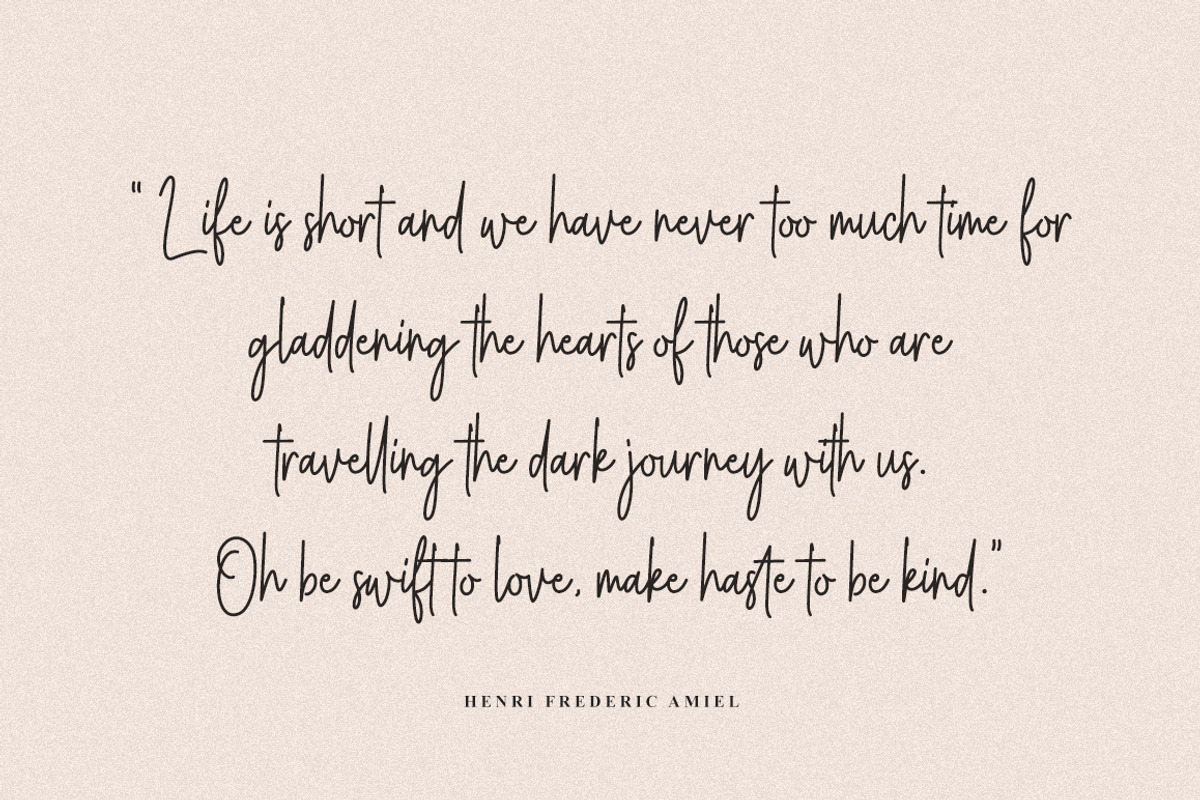 " Life is short and we have never too much time for
gladdening the hearts of those who are
travelling the dark journey with us.
Oh be swift to love, make haste to be kind."
HENRI FREDERIC AMIEL